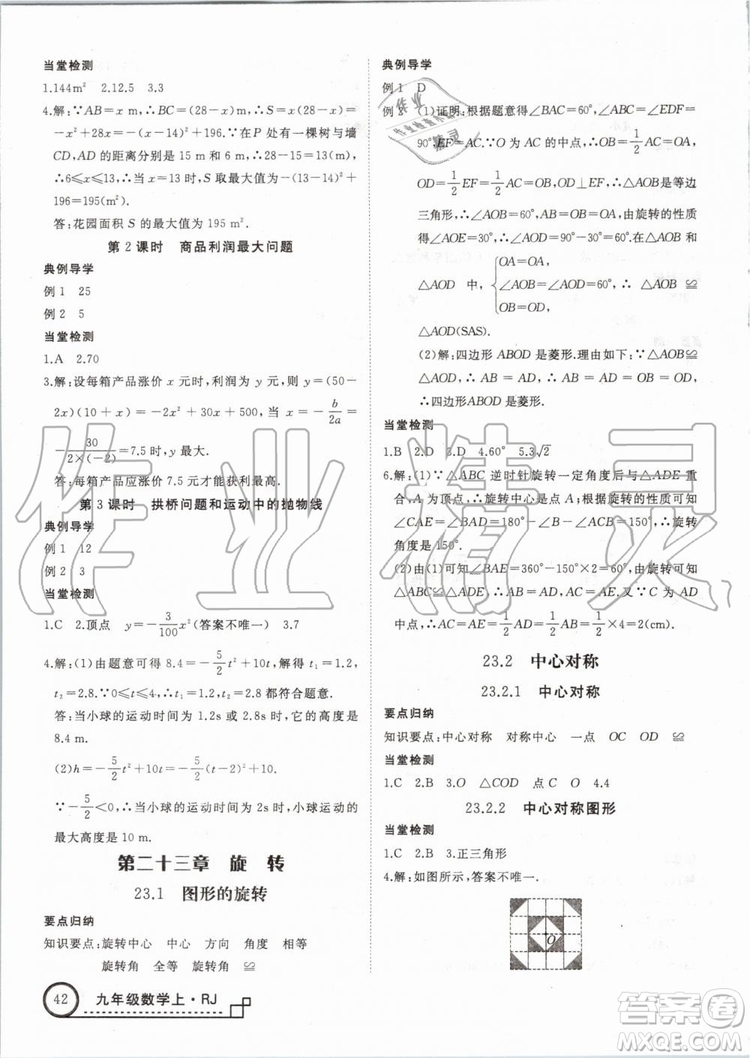 当堂检测
1.144m² 2.12.5 3.3
4.解:∵AB=x,∴BC=28-x,∴S=x(28-x)=
-x²+28x=-(x-14)²+196.∵在 P 处有一棵树与墙
CD,AD 的距离分别是 15 m 和 6 m,∴28-15=13(m),
∴6≤x≤13,∴当 x=13 时,S 取最大值为-(13-14)²+
196=195(m²).
答:花园面积 S 的最大值为 195 m².
第 2 课时 商品利润最大问题
典例导学
例 1 25
例 2 5
当堂检测
1.A 2.70
3.解:设每箱产品涨价 x 元时,利润为 y 元,y=(50-
2x)(10+x)=-2x²+30x+500,当 x=-b/2a=
-30/(-2×2)=7.5 时,y 有最大值.
答:每箱产品应涨价 7.5 元才能获得最大利润.
第 3 课时 拱桥问题和运动中的抛物线
典例导学
例 1 12
例 2 3
当堂检测
1.C 2.顶点 y=-3/100x²(答案不唯一) 3.7
4.解:(1)由题意可得 8.4=-5/2t²+10t,解得 t₁=1.2,
t₂=2.8,∵0≤t≤4,∴t=1.2,t=2.8 都符合题意.
答:当小球的运动时间为 1.2s 或 2.8s 时,小球的高度是
8.4 m.
(2)h=-5/2t²+10t=-5/2(t-2)²+10.
∵-5/2<0,∴当小球的运动时间为 2s 时,小球运动的
最大高度是 10 m.
第二十三章 旋 转
23.1 图形的旋转
要点归纳
知识要点:旋转中心 中心 方向 角度 相等
旋转角 全等 旋转角 ≌
42 九年级数学上·RJ
典例导学
例 1 D
例 2 (1)证明:根据题意得∠BAC=60°,∠ABC=∠EDF=
90°,EF=AC,∵O 为 AC 的中点,∴OB=OA=1/2AC,
OD=1/2EF=1/2AC,OD⊥EF,∴△AOB 是等边
三角形,∴OA=OB=OD,∠AOB=60°,由旋转的性质
得∠AOE=30°,∴∠AOD=90°-30°=60°,在△AOB 和
△AOD 中,{OA=OA,
∠AOB=∠AOD=60°,
OB=OD,
∴△AOB≌
△AOD(SAS).
(2)解:四边形 ABOD 是菱形.理由如下:∵△AOB≌
△AOD,∴AB=AD=OB=OA=OD,
∴四边形 ABOD 是菱形.
当堂检测
1.B 2.D 3.D 4.60° 5.3√2
6.解:(1)∵△ABC 逆时针旋转一定角度后与△ADE 重
合,A 为顶点,∴旋转中心是点 A;根据旋转的性质可知
∠CAE=∠BAD=180°-∠B-∠ACB=150°,∴旋转
角度是 150°.
(2)由(1)可知∠BAE=360°-150°×2=60°,由旋转可知
△ABC≌△ADE,∴AB=AD,AC=AE,又∵C 为 AD 的
中点,∴AC=AE=1/2AD=1/2AB=1/2×4=2(cm).
23.2 中心对称
23.2.1 中心对称
要点归纳
知识要点:中心对称 对称中心 一点 OC OD ≌
当堂检测
1.C 2.B 3.O △COD 点 C O 4.4
23.2.2 中心对称图形
当堂检测
1.C 2.B 3.正三角形
4.解:如图所示,答案不唯一.
O
作业精灵
答案圈
MXQE.COM